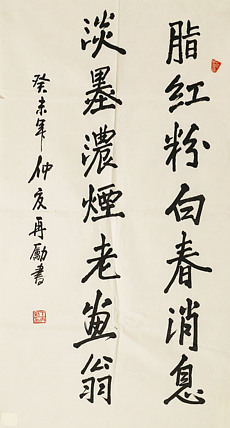 脂红粉白春消息
淡墨濃煙老画翁
癸未年仲夏再勵書